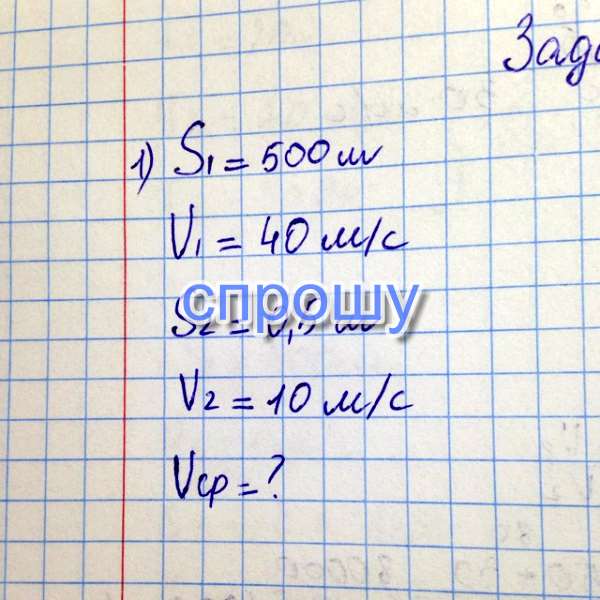 Зада
1) S₁ = 500 м
V₁ = 40 м/с
спрошу
S₂ =
V₂ = 10 м/с
Vср = ?